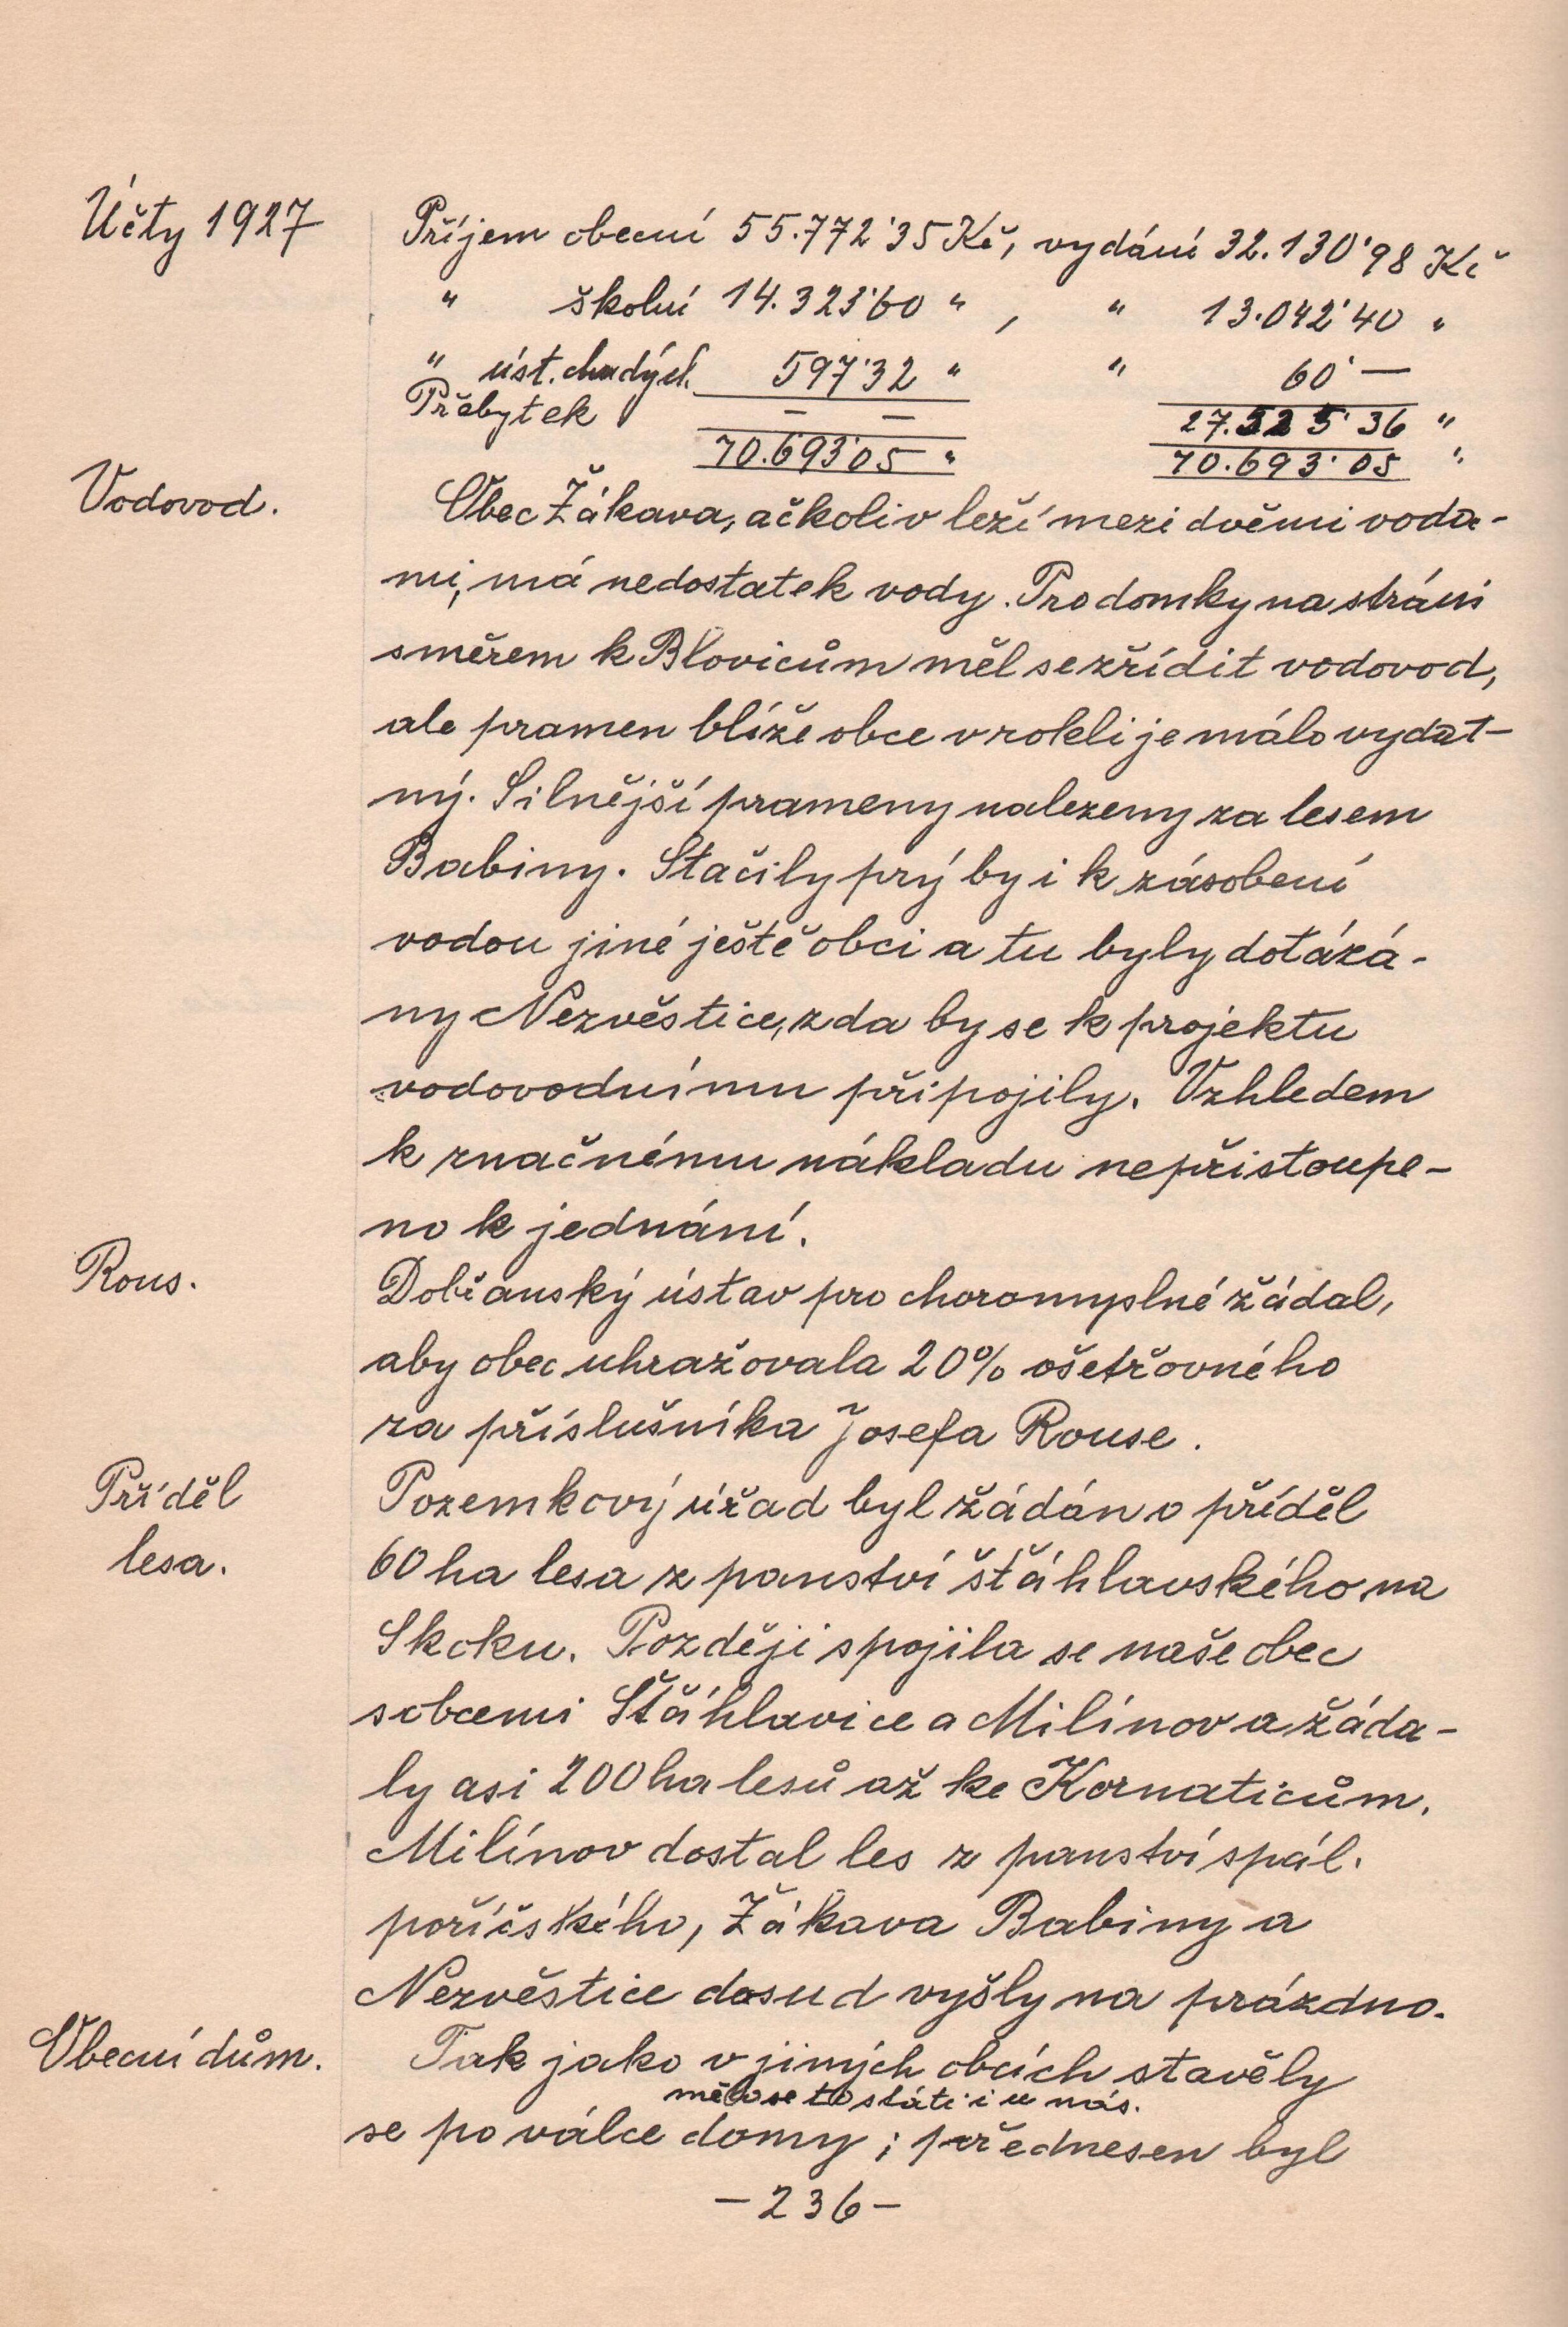 Účty 1927
Příjem obecní 55.772'35 Kč, vydání 32.130'98 Kč
" školní 14.323'60 " , " 13.042'40 "
" úst. chudých 597'32 " " 60'—
Přebytek — — 27.525'36 "
70.693'05 " 70.693'05 "
Vodovod.
Obec Žákava, ačkoliv leží mezi dvěmi voda-
mi, má nedostatek vody. Pro domky na stráni
směrem k Blovicům měl se zřídit vodovod,
ale pramen blíže obce v rokli je málo vydat-
ný. Silnější prameny nalezeny za lesem
Babiny. Stačily prý by i k zásobení
vodou jiné ještě obci a tu byly dotázá-
ny Nezvěstice, zda by se k projektu
vodovodnímu připojily. Vzhledem
k značnému nákladu nepřistoupe-
no k jednání.
Rous.
Dobřanský ústav pro choromyslné žádal,
aby obec uhražovala 20% ošetřovného
za příslušníka Josefa Rouse.
Příděl
lesa.
Pozemkový úřad byl žádán o příděl
60 ha lesa z panství šťáhlavského na
Skoku. Později spojila se naše obec
s obcemi Šťáhlavice a Milínov a žáda-
ly asi 200 ha lesů až ke Kornaticům.
Milínov dostal les z panství spál.
poříčského, Žákava Babiny a
Nezvěstice dosud vyšly na prázdno.
Obecní dům.
Tak jako v jiných obcích stavěly
mělo se to státi i u nás.
se po válce domy; přednesen byl
— 236 —